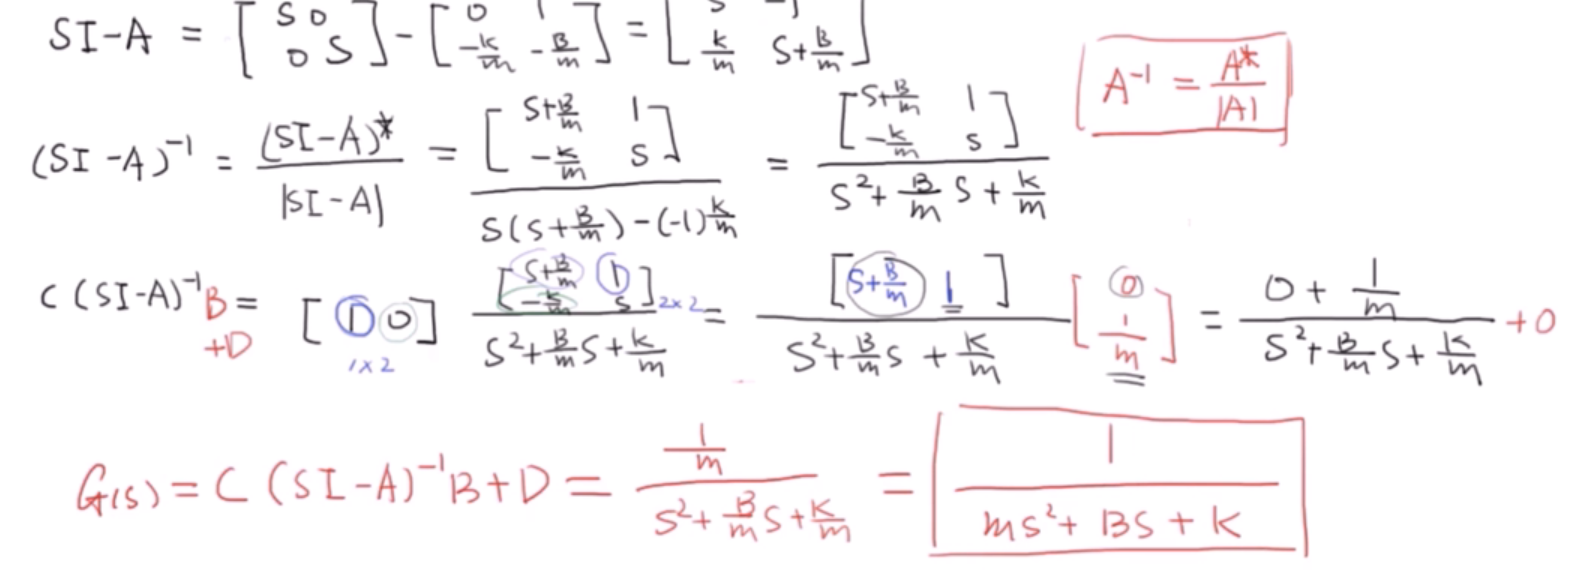 SI-A = [S 0; 0 S] - [0 1; -K/m -B/m] = [S -1; K/m S+B/m]
A⁻¹ = A*/|A|
(SI-A)⁻¹ = (SI-A)*/|SI-A| = [S+B/m 1; -K/m S]/(S(S+B/m)-(-1)K/m) = [S+B/m 1; -K/m S]/(S²+B/m S+K/m)
C(SI-A)⁻¹B+D = [1 0] [S+B/m 1; -K/m S]/(S²+B/m S+K/m) = [S+B/m 1]/(S²+B/m S+K/m) [0; 1/m] = (0+1/m)/(S²+B/m S+K/m) +0
1×2 2×2
G(s) = C(SI-A)⁻¹B+D = (1/m)/(S²+B/m S+K/m) = 1/(mS²+BS+K)